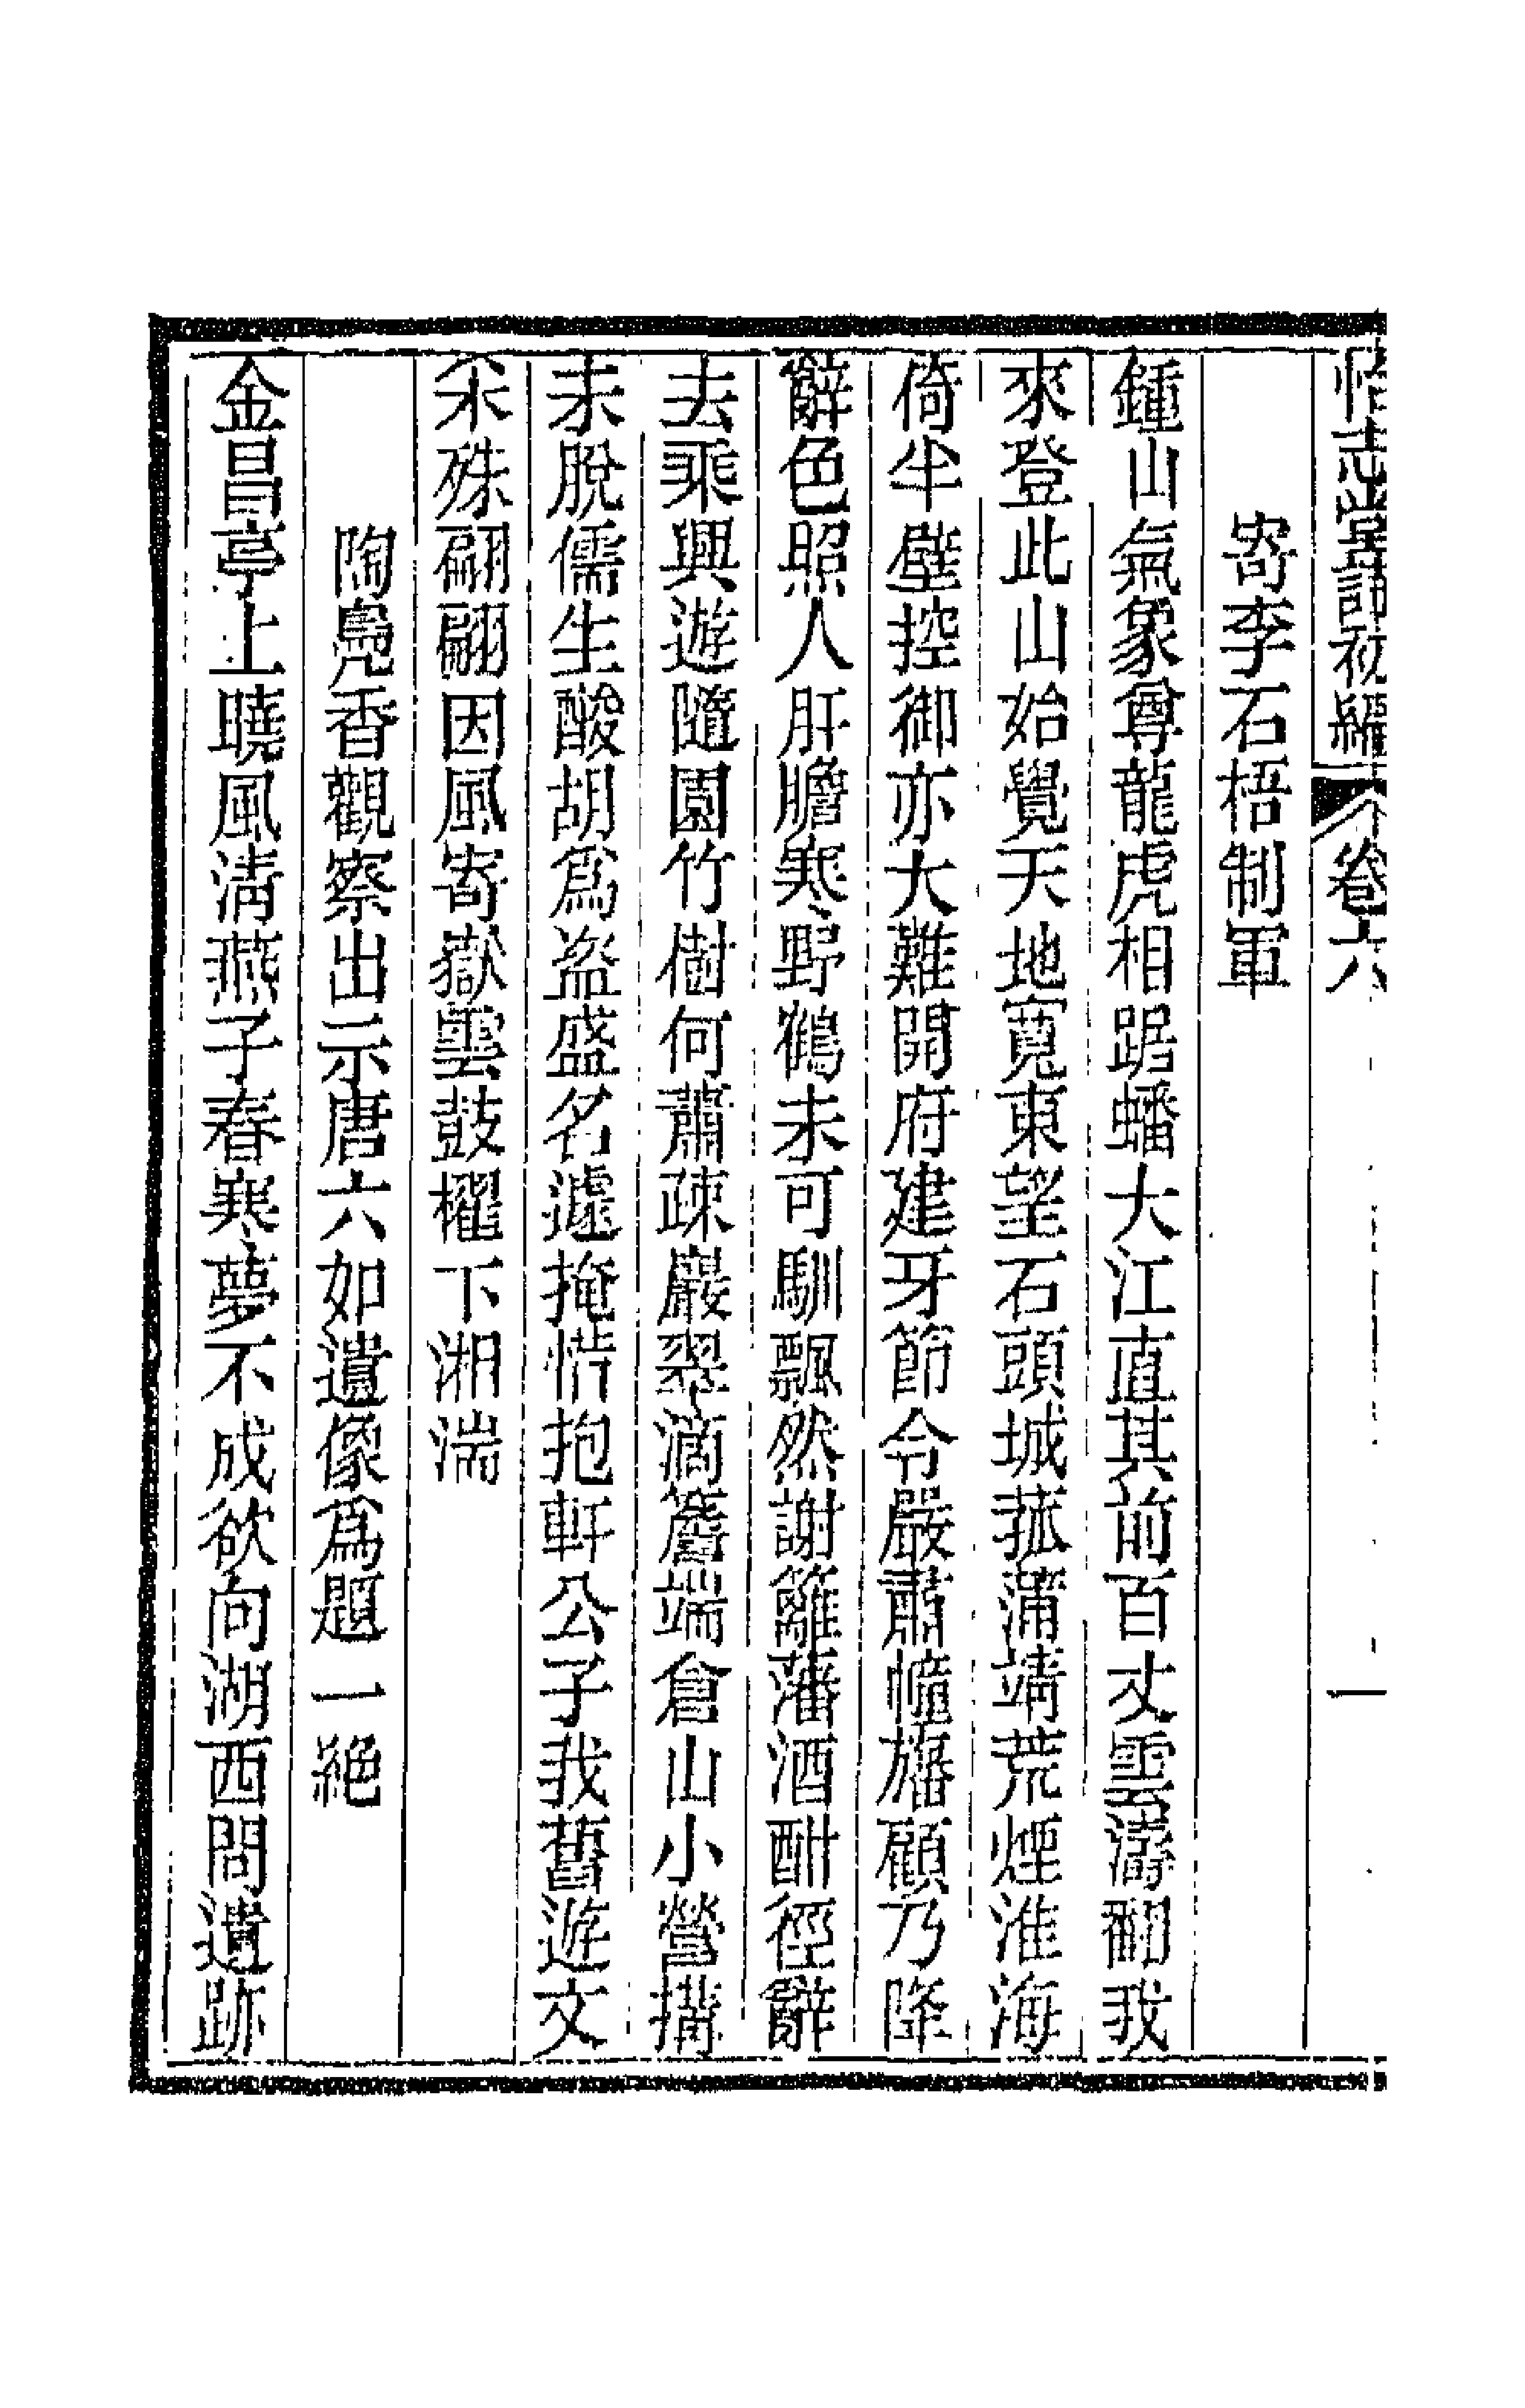 怡志堂詩初編 卷六 一
寄李石梧制軍
鍾山氣象尊龍虎相踞蟠大江直其前百丈雲濤翻我
來登此山始覺天地寬東望石頭城菰蒲靖荒煙淮海
倚半壁控御亦大難開府建牙節令嚴肅幢旛顧乃降
辭色照人肝膽寒野鶴未可馴飄然謝籬藩酒酣徑辭
去乘興遊隨園竹樹何蕭疎巖翠滴簷端倉山小營搆
未脫儒生酸胡爲盜盛名遽掩惜抱軒公子我舊遊文
采殊翩翩因風寄嶽雲鼓櫂下湘湍
陶鳧香觀察出示唐六如遺像爲題一絕
金昌亭上曉風淸燕子春寒夢不成欲向湖西問遺跡